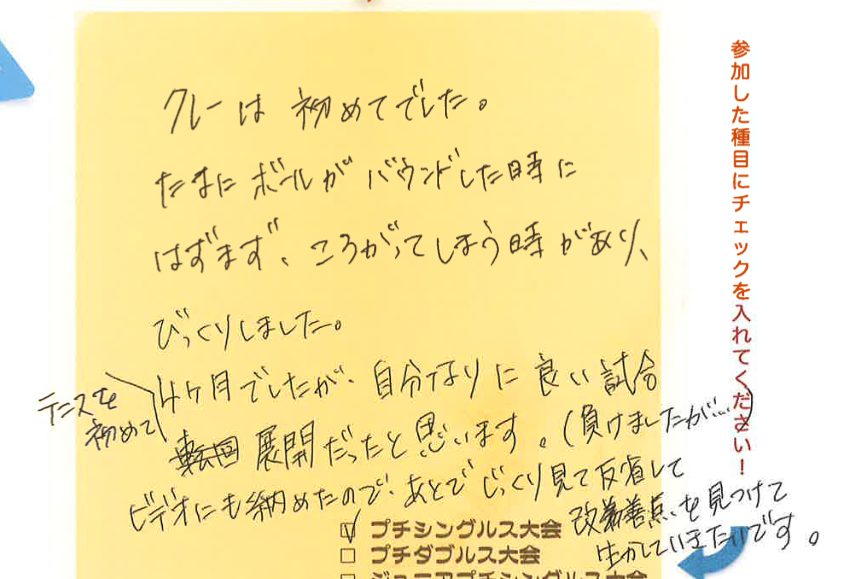 クレーは初めてでした。
たまにボールがバウンドした時に
はずまず、ころがってしまう時があり、
びっくりしました。
テニスを
初めて
4ヶ月でしたが、自分なりに良い試合
展開だったと思います。(負けましたが…)
ビデオにも納めたので、あとでじっくり見て反省して
改善点を見つけて
生かしていきたいです。
☑ プチシングルス大会
□ プチダブルス大会
□ ジュニアプチシングルス大会
参加した種目にチェックを入れてください!